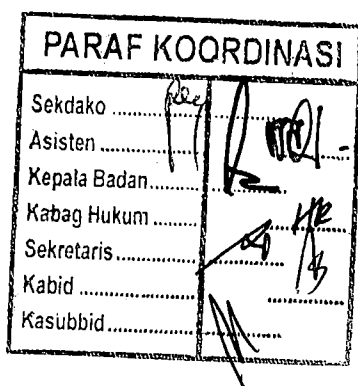 PARAF KOORDINASI
Sekdako ..............
Asisten ..............
Kepala Badan..........
Kabag Hukum ..........
Sekretaris............
Kabid ................
Kasubbid..............